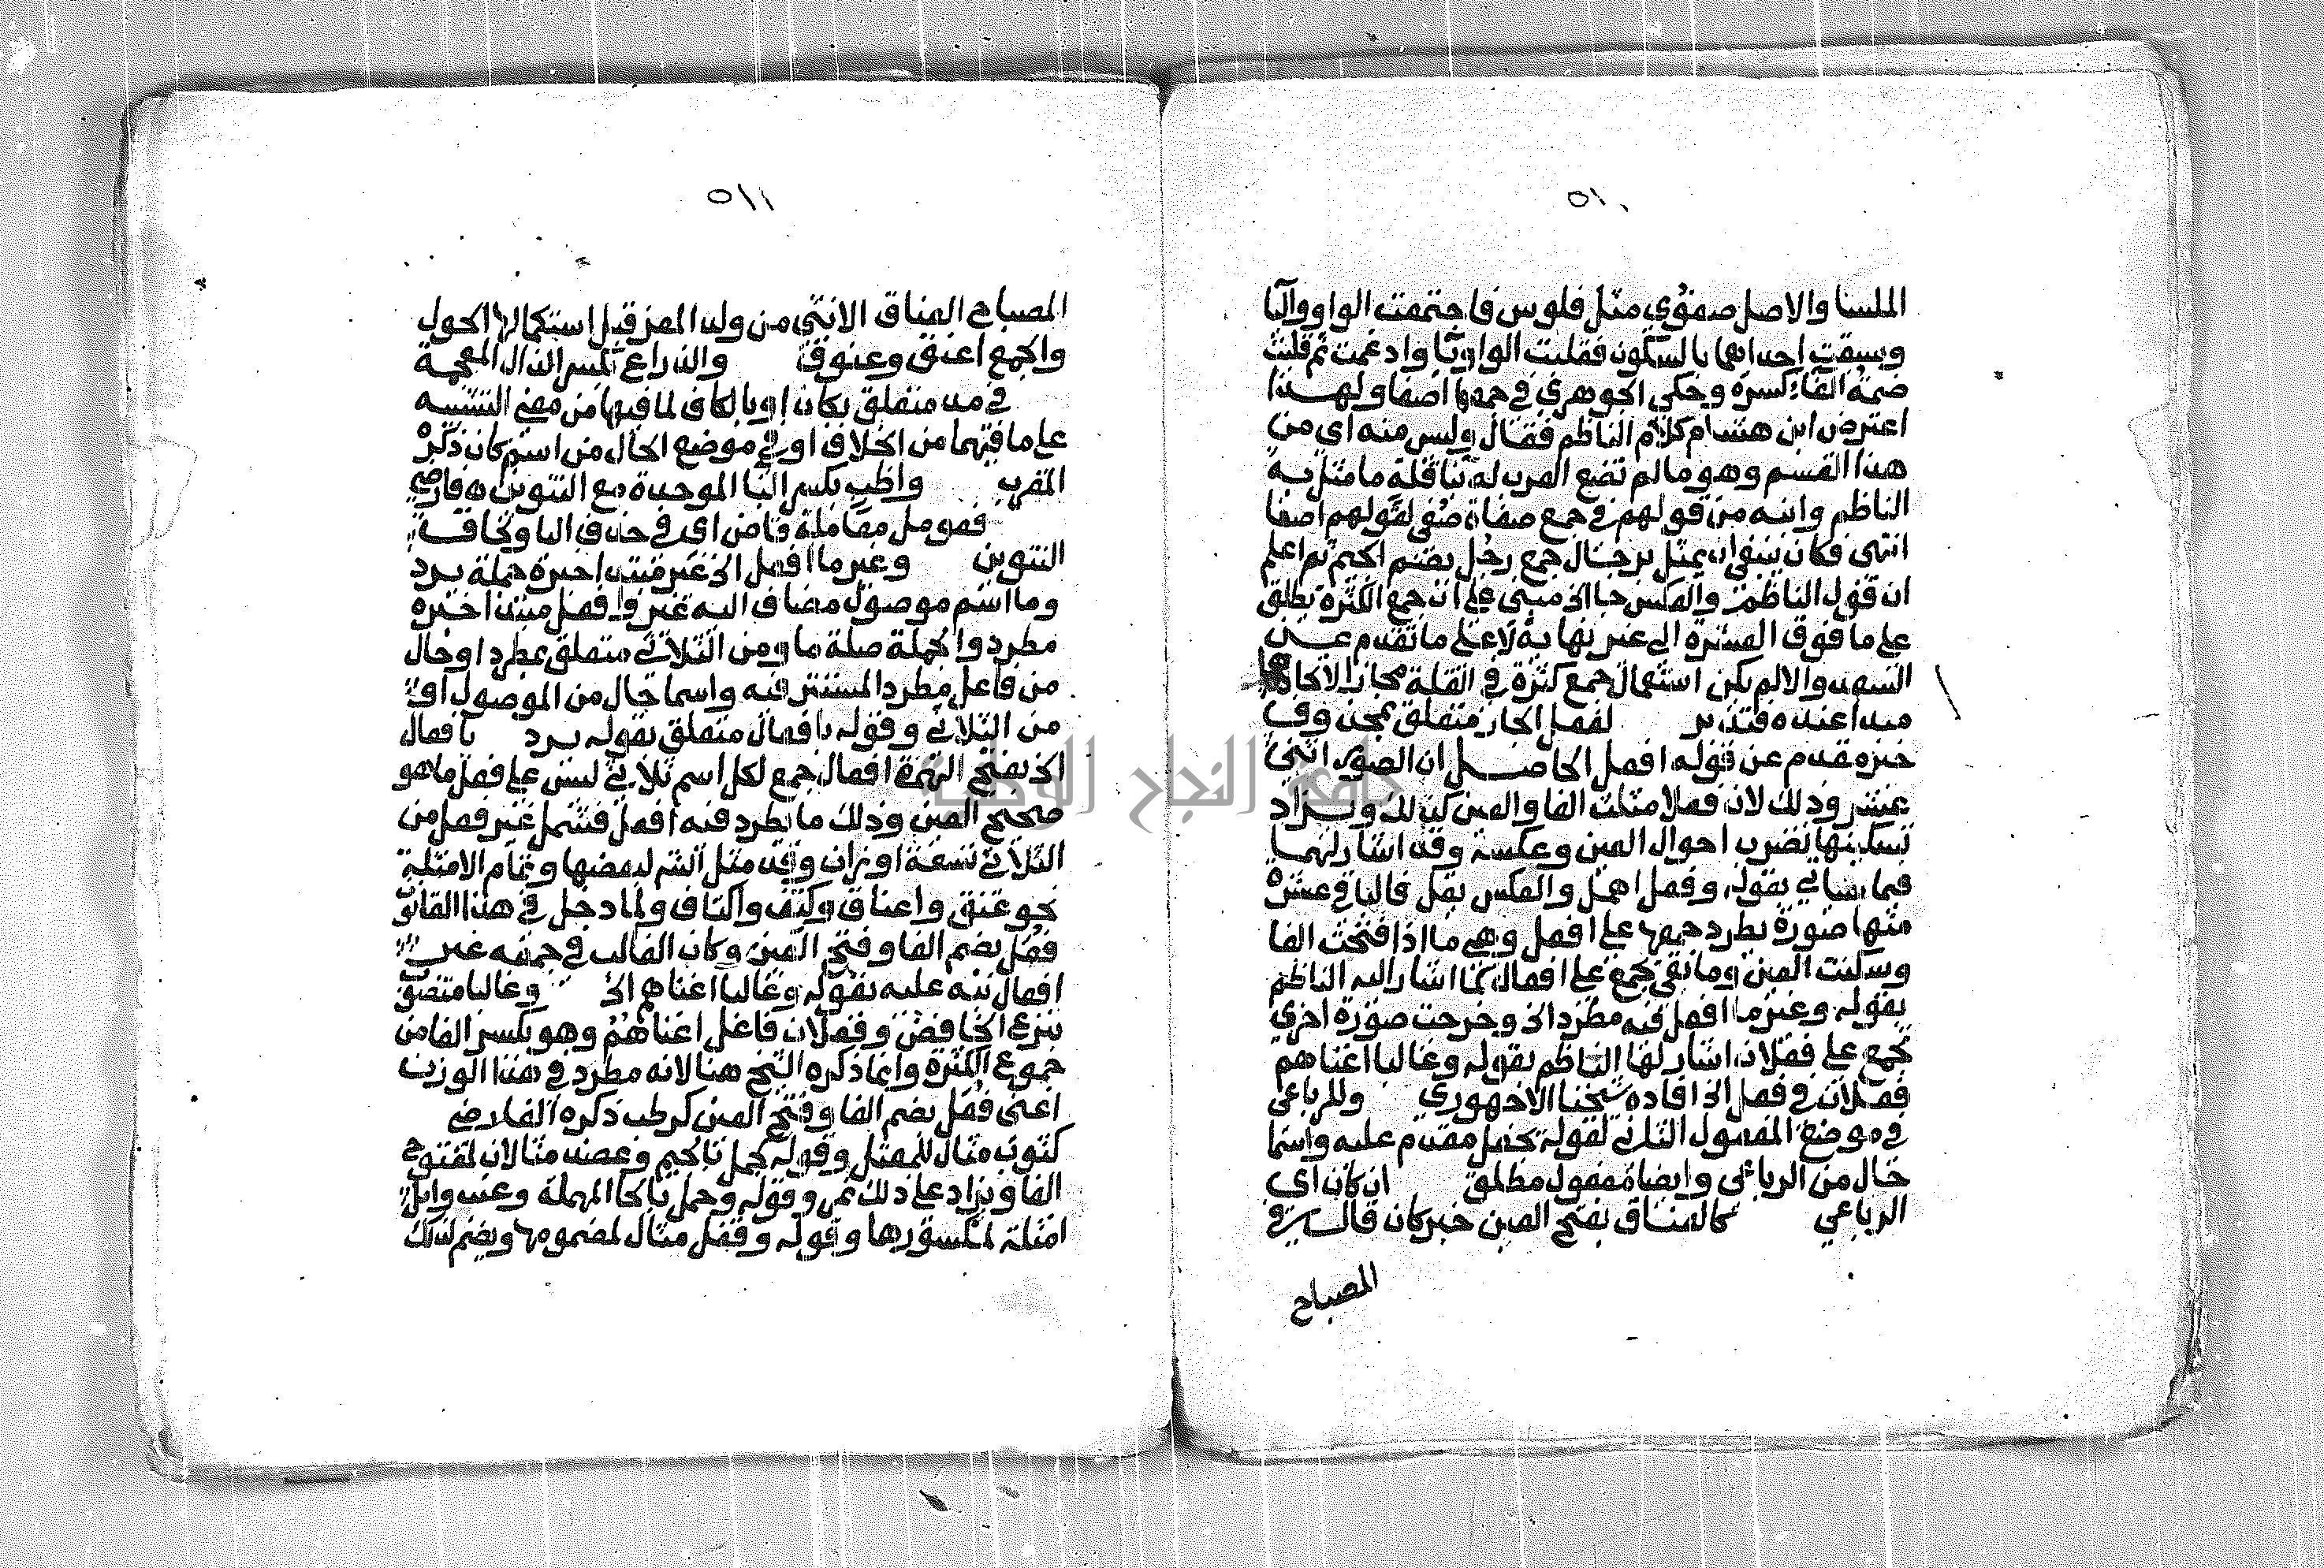 ٥١٠
الملسا والاصل صفوي مثل فلوس فاجتمعت الواو واليا
وسبقت احداهما بالسكون فقلبت الواو يا وادغمت ثم قلبت
ضمة الفا كسرة وحكى الجوهري في جمعها اصفا ولهذا
اعترض ابن هشام كلام الناظم فقال وليس منه اي من
هذا القسم وهو مالم تضع العرب له بنا قلة ما مثل به
الناظم وابنه من قولهم في جمع صفاة صفي لقولهم اصفا
انتهى فكان ينبغي ان يمثل برجال جمع رجل بضم الجيم ثم اعلم
ان قول الناظم والعكس جا الخ مبني على ان جمع الكثرة يطلق
على ما فوق العشرة الى غير نهاية لا على ما تقدم عن
السعد والا لم يكن استعمال جمع كثرة في القلة مجازا
منه اعنده فتدبر لفعل الجار متعلق بمحذوف
خبره مقدم عن قوله افعل الحاصل ان الصور اثني
عشر وذلك لان فعلا مثلث الفا والعين كذلك ويزاد
تسكينها تضرب احوال العين وعكسه وقد اشار لهما
فيما سياتي بقوله وفعل اهمل والعكس يقل فالباقي عشرة
منها صورة يطرد جمعها على افعل وهي ما اذا فتحت الفا
وسكنت العين وما بقي يجمع على افعال كما اشار اليه الناظم
بقوله وغير ما افعل فيه مطرد الخ وخرجت صورة اخرى
تجمع على فعلان اشار لها الناظم بقوله وغالبا اغناهم
فعلان في فعل الخ افاده شيخنا الاجهوري وللرباعي
في موضع المفعول الثاني لقوله يجعل مقدم عليه واسما
حال من الرباعي وايضا مفعول مطلق ان كان اي
الرباعي كالعناق بفتح العين خبر كان قال في
المصباح
٥١١
المصباح العناق الانثى من ولد المعز قبل استكمالها الحول
والجمع اعنق وعنوق والذراع بكسر الذال المعجمة
في مد متعلق بكان او بالكاف لما فيها من معنى التشبيه
على ما فيهما من الخلاف او في موضع الحال من اسم كان ذكره
المعرب واظب بكسر البا الموحدة مع التنوين
فعومل معاملة قاض اي في حذف اليا ولحاق
التنوين وغير ما افعل الخ غير مبتدا خبره جملة يرد
وما اسم موصول مضاف اليه غير وافعل مبتدا خبره
مطرد والجملة صلة ما ومن الثلاثي متعلق بمطرد او حال
من فاعل مطرد المستتر فيه واسما حال من الموصول او
من الثلاثي وقوله بافعال متعلق بقوله يرد بافعال
الخ بفتح الهمزة افعال جمع لكل اسم ثلاثي ليس على فعل ما هو
صحيح العين وذلك ما يطرد فيه افعل فشمل غير فعل من
الثلاثي تسعة اوزان وقد مثل الش لبعضها وتمام الامثلة
نحو عنق واعناق وكتف واكتاف ولما دخل في هذا القانون
فعل بضم الفا وفتح العين وكان الغالب في جمعه غير
افعال نبه عليه بقوله وغالبا اغناهم الخ وغالبا منصوب
بنزع الخافض وفعلان فاعل اغناهم وهو بكسر الفا من
جموع الكثرة وانما ذكره الشيخ هنا لانه مطرد في هذا الوزن
اعني فعل بضم الفا وفتح العين كرطب ذكره الفارضي
كثوب مثال للمعتل وقوله كجمل بالجيم وعضد مثالان لمفتوح
الفا ويزاد على ذلك نمر وقوله وحمل بالحا المهملة وعنب وابل
امثلة لمكسورها وقوله وقفل مثال لمضمومها ويضم لذلك